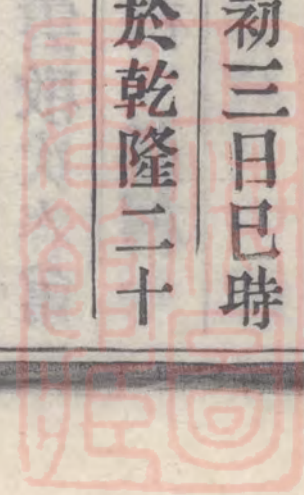 初三日巳時
於乾隆二十